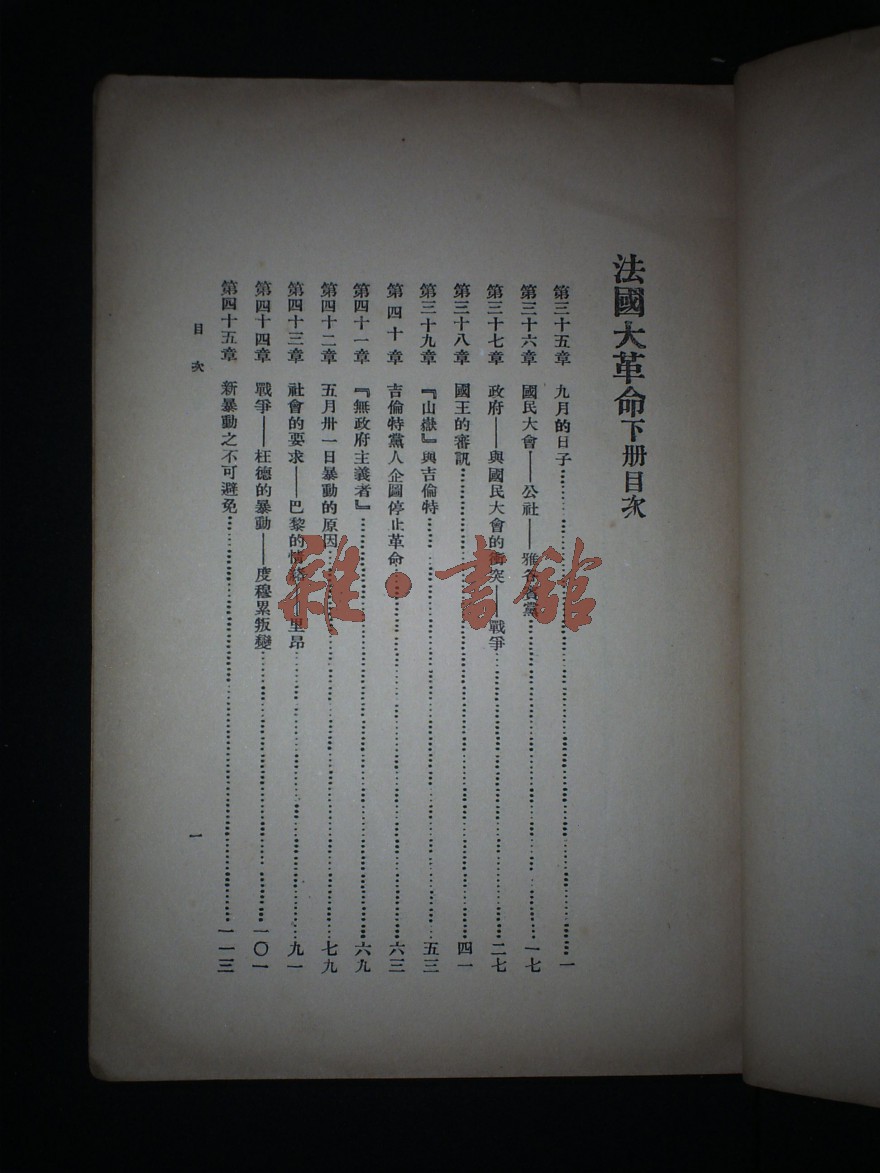 法國大革命下册目次
第三十五章 九月的日子……一
第三十六章 國民大會——公社——雅各賓黨……一七
第三十七章 政府——與國民大會的衝突——戰爭……二七
第三十八章 國王的審訊……四一
第三十九章 『山嶽』與吉倫特……五三
第四十章 吉倫特黨人企圖停止革命……六三
第四十一章 『無政府主義者』……六九
第四十二章 五月卅一日暴動的原因……七九
第四十三章 社會的要求——巴黎的情緒——里昂……九一
第四十四章 戰爭——枉德的暴動——度穆累叛變……一〇一
第四十五章 新暴動之不可避免……一一三
目次
一
雜·書館